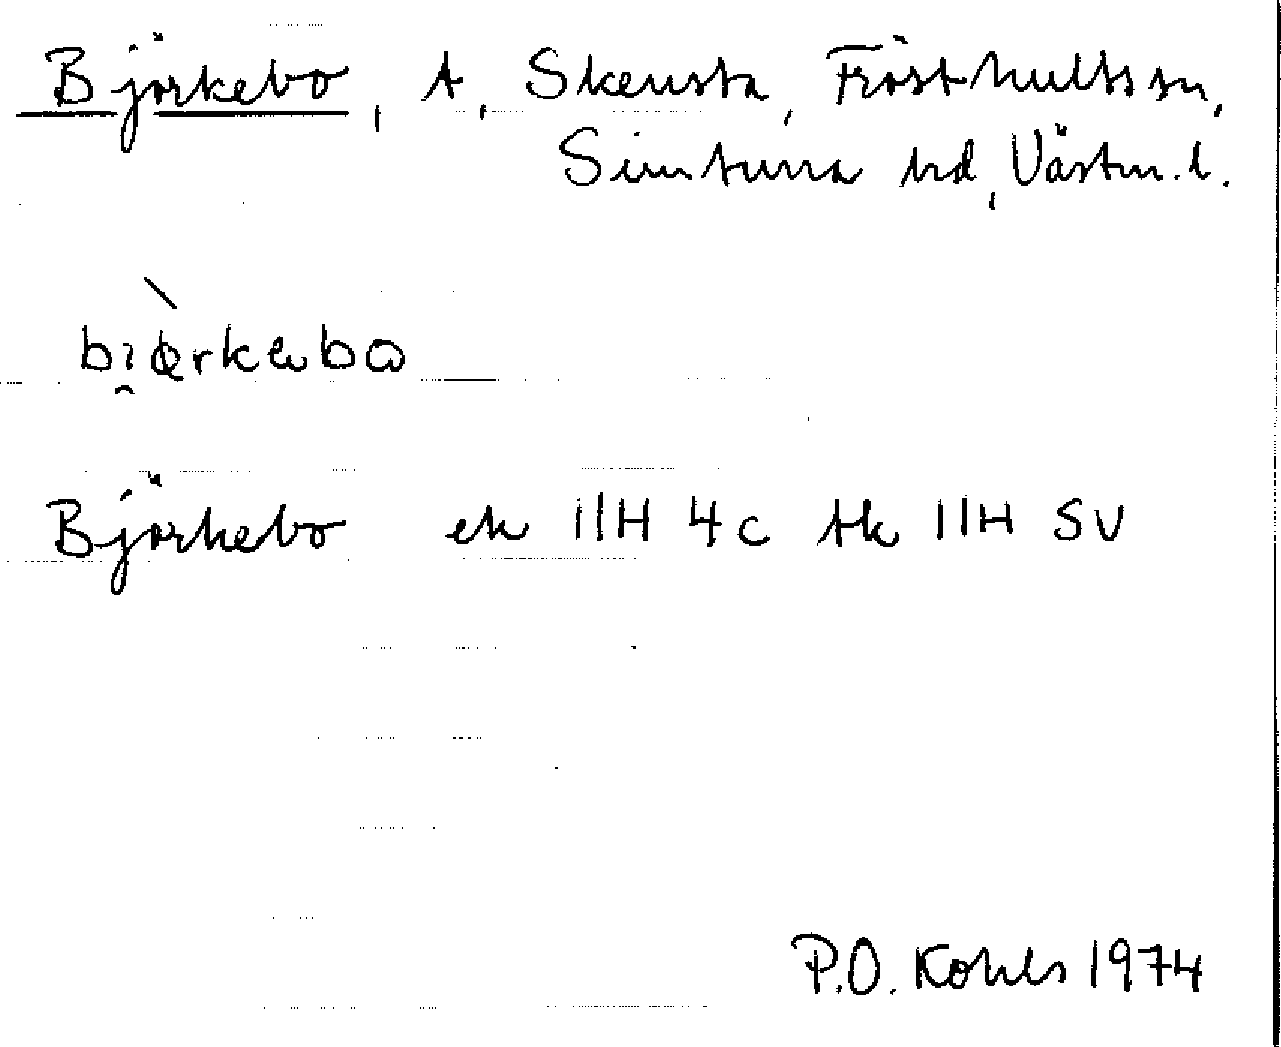 Björkebo, A, Skensta, Frösthults sn,
Simtuna hd, Västm. l.
Björkebo ek 11H 4c tk 11H SV
P.O. Kohls 1974